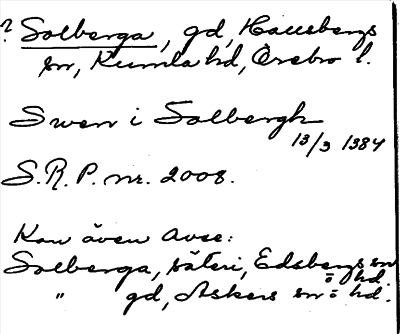 ? Solberga, gd, Hausbergs
sn, Kumla hd, Örebro l.
Swen i Solbergh
13/3 1384
S.R.P. nr. 2008.
Kan även avse:
Solberga, säteri, Edsbergs sn
ö hd.
" gd, Askers sn ö hd.